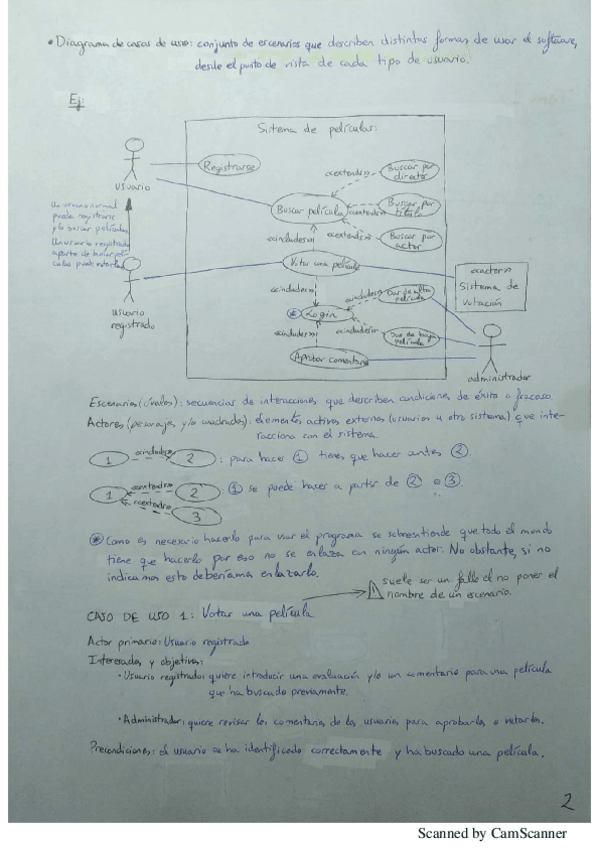 • Diagrama de casos de uso: conjunto de escenarios que describen distintas formas de usar el software,
desde el punto de vista de cada tipo de usuario.
Ej:
Sistema de películas:
Registrarse
usuario
Un usuario normal
puede registrarse
y/o buscar películas
Un usuario registrado
aparte de buscar pelí-
culas puede votarlas
usuario
registrado
Buscar película
«extends»
Buscar por
director
«extends»
Buscar por
título
«extends»
Buscar por
actor
«includes»
Votar una película
«actor»
Sistema de
Votación
«includes»
«includes»
Dar de alta
película
* Login
«includes»
Dar de baja
película
«includes»
Aprobar comentario
administrador
Escenarios (óvalos): secuencias de interacciones que describen condiciones de éxito o fracaso.
Actores (personajes y/o cuadrados): elementos activos externos (usuarios u otro sistema) que inte-
racciona con el sistema.
1 «includes» 2 : para hacer 1 tienes que hacer antes 2.
1 «extends» 2 : 1 se puede hacer a partir de 2 o 3.
«extends» 3
* Como es necesario hacerlo para usar el programa se sobreentiende que todo el mundo
tiene que hacerlo por eso no se enlaza con ningún actor. No obstante, si no
indicamos esto deberíamos enlazarlo.
suele ser un fallo el no poner el
nombre de un escenario.
CASO DE USO 1: Votar una película
Actor primario: Usuario registrado
Interesados y objetivos:
• Usuario registrado: quiere introducir una evaluación y/o un comentario para una película
que ha buscado previamente.
• Administrador: quiere revisar los comentarios de los usuarios para aprobarlos o vetarlos.
Precondiciones: el usuario se ha identificado correctamente y ha buscado una película.
2
Scanned by CamScanner